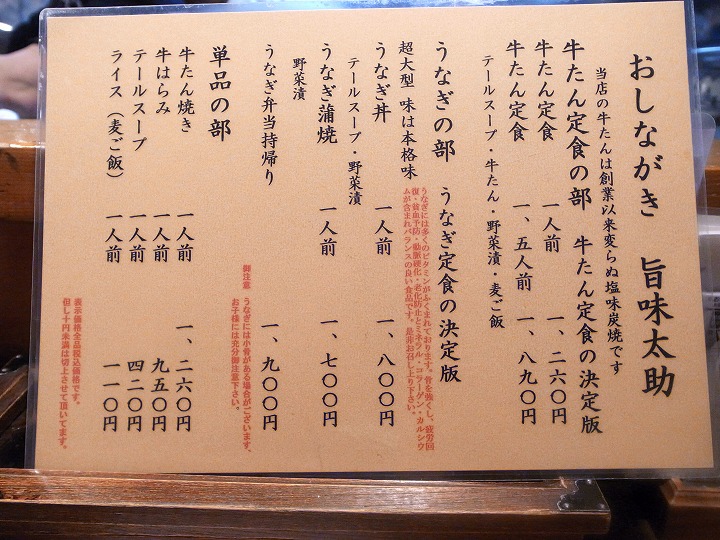 おしながき 旨味太助
当店の牛たんは創業以来変らぬ塩味炭焼です
牛たん定食の部 牛たん定食の決定版
牛たん定食 一人前 一、二六〇円
牛たん定食 一、五人前 一、八九〇円
テールスープ・牛たん・野菜漬・麦ご飯
うなぎの部 うなぎ定食の決定版
超大型 味は本格味
うなぎには多くのビタミンがふくまれております。骨を強くし、疲労回
復・貧血予防・動脈硬化・老化防止とミネラル・コラーゲン・カルシウ
ムが含まれバランスの良い食品です。是非お召し上り下さい。
うなぎ丼 一人前 一、八〇〇円
テールスープ・野菜漬
うなぎ蒲焼 一人前 一、七〇〇円
野菜漬
うなぎ弁当持帰り 一、九〇〇円
御注意 うなぎには小骨がある場合がございます。
お子様には充分御注意下さい。
単品の部
牛たん焼き 一人前 一、二六〇円
牛はらみ 一人前 九五〇円
テールスープ 一人前 四二〇円
ライス（麦ご飯） 一人前 一一〇円
表示価格全品税込価格です。
但し十円未満は切上させて頂いてます。